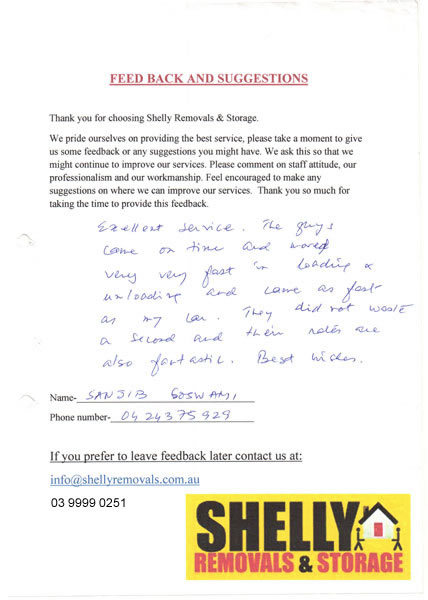 FEED BACK AND SUGGESTIONS
Thank you for choosing Shelly Removals & Storage.
We pride ourselves on providing the best service, please take a moment to give
us some feedback or any suggestions you might have. We ask this so that we
might continue to improve our services. Please comment on staff attitude, our
professionalism and our workmanship. Feel encouraged to make any
suggestions on where we can improve our services. Thank you so much for
taking the time to provide this feedback.
Exellent service. The guys
came on time and moved
very very fast in loading &
unloading and came as fast
as my car. They did not waste
a second and their rates are
also fantastic. Best wishes.
Name- SANJIB GOSWAMI
Phone number- 0424375929
If you prefer to leave feedback later contact us at:
info@shellyremovals.com.au
03 9999 0251
SHELLY
REMOVALS & STORAGE